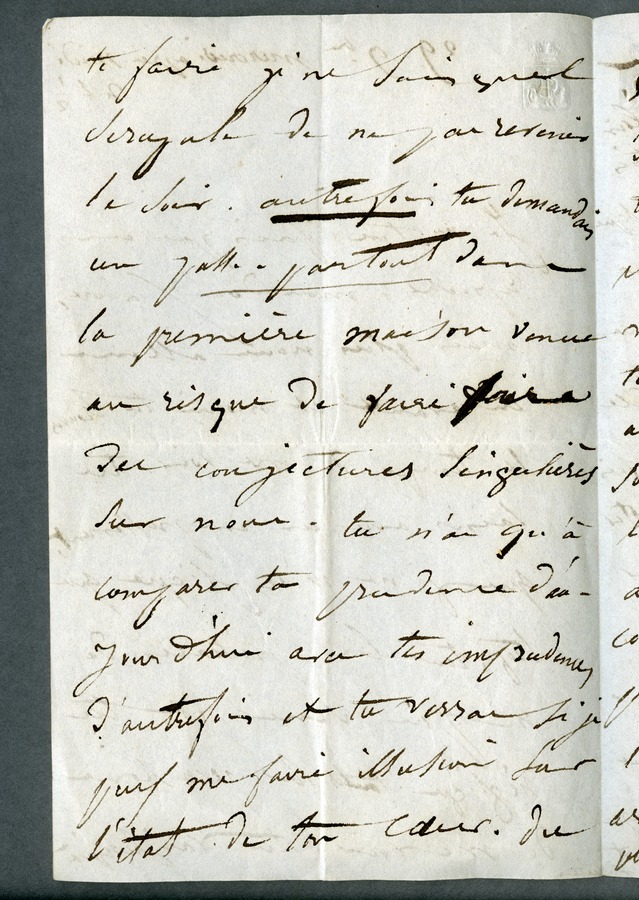 te faire je ne sais quel
scrupule de ne pas revenir
le soir. autrefois tu demandais
un passe-partout dans
la première maison venue
au risque de faire faire
des conjectures singulières
sur nous. tu n'as qu'à
comparer ta prudence d'au-
jourd'hui avec tes imprudences
d'autrefois et tu verras si je
puis me faire illusion sur
l'état de ton cœur. du